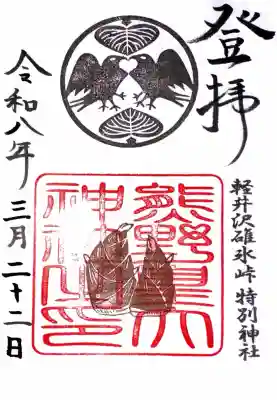 登拝
軽井沢碓氷峠 特別神社
熊野皇大
神社之印
令和八年
三月二十二日